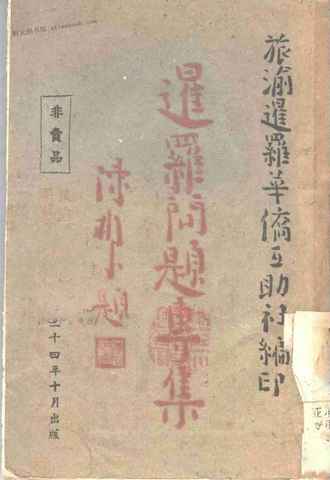 旅渝暹羅華僑互助社編印
暹羅問題專集
題
非賣品
三十四年十月出版